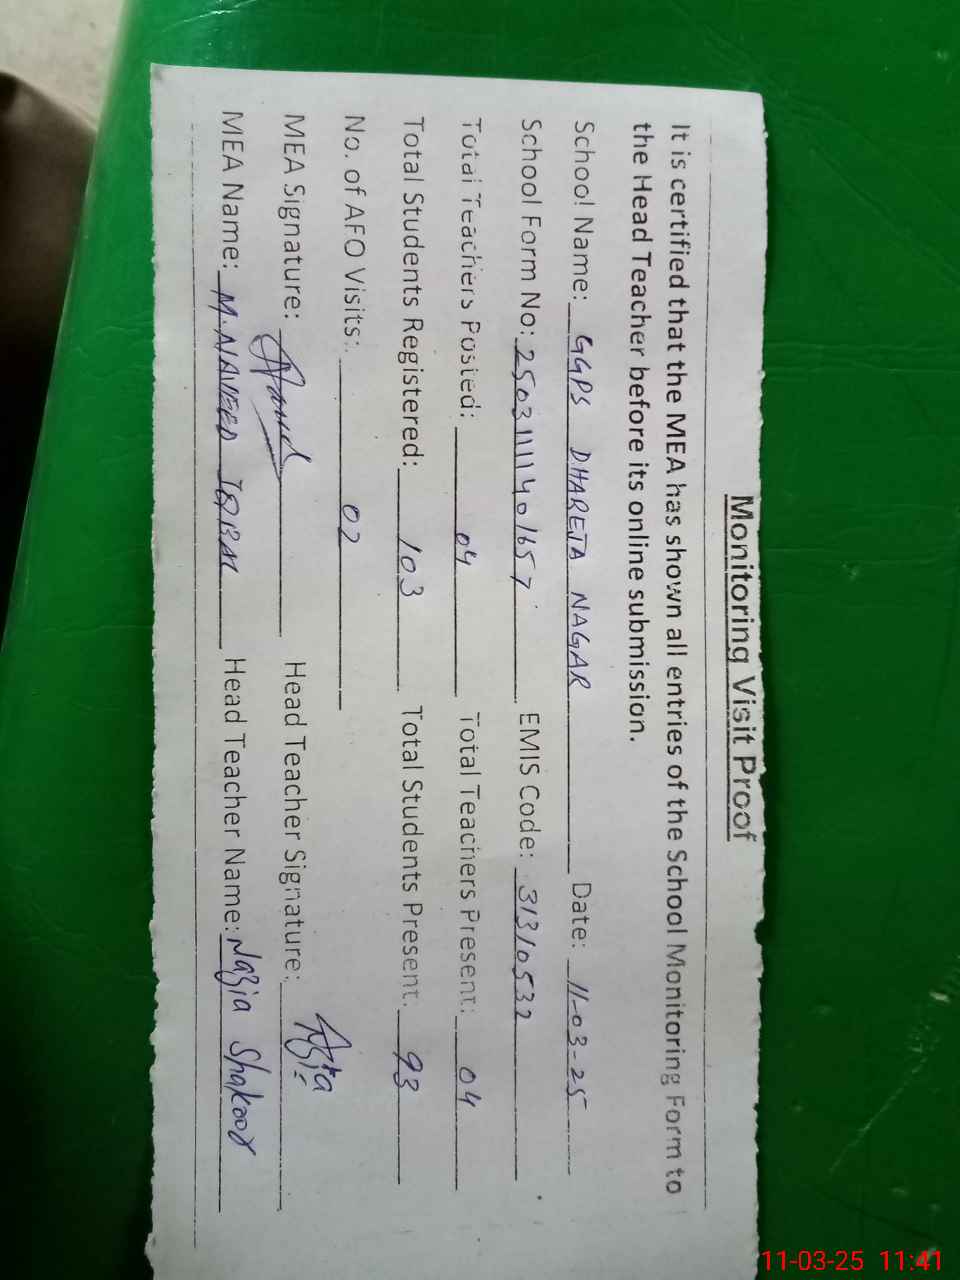 Monitoring Visit Proof
It is certified that the MEA has shown all entries of the School Monitoring Form to
the Head Teacher before its online submission.
School Name: GGPS DHAREJA NAGAR Date: 11-03-25
School Form No: 25031111401657 EMIS Code: 31310532
Total Teachers Posted: 04 Total Teachers Present: 04
Total Students Registered: 103 Total Students Present: 93
No. of AFO Visits: 02
MEA Signature: Head Teacher Signature:
MEA Name: M. NAVEED IQBAL Head Teacher Name: Nazia Shakoor
11-03-25 11:41